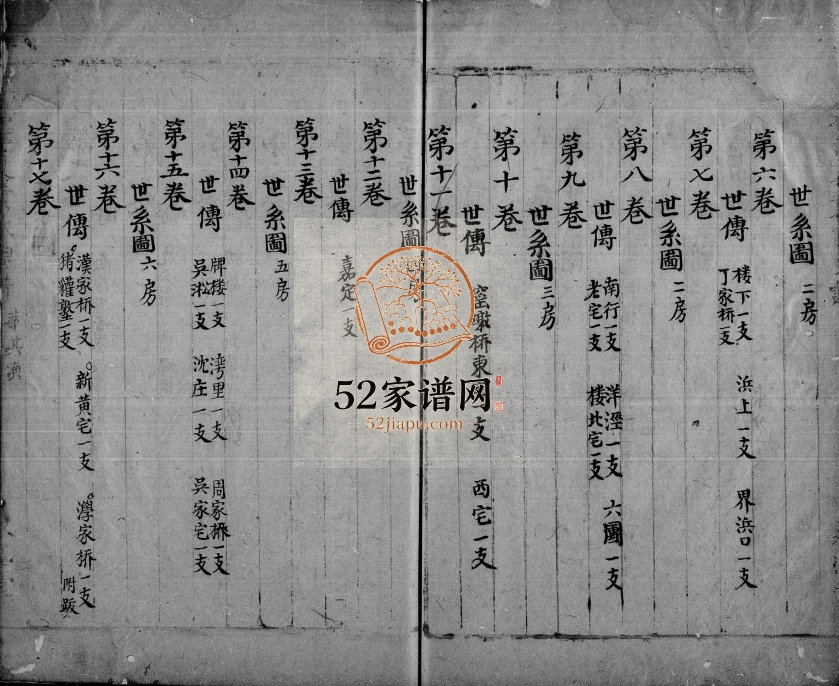 世系圖 二房
第六卷
世傳 楼下一支 浜上一支 界浜口一支
丁家桥一支
第七卷
世系圖 二房
第八卷
世傳 南行一支 洋涇一支 六團一支
老宅一支 楼北宅一支
第九卷
世系圖 三房
第十卷
世傳 窑墩桥東 支 西宅一支
第十一卷
世系圖
第十二卷
世傳 嘉定一支
第十三卷
世系圖 五房
第十四卷
世傳 牌楼一支 湾里一支 周家桥一支
吳淞一支 沈庄一支 吳家宅一支
第十五卷
世系圖 六房
第十六卷
世傳 漢家桥一支 新黄宅一支 灣家桥一支
猪獾墪一支 附跋
第十七卷
52家谱网
52jiapu.com